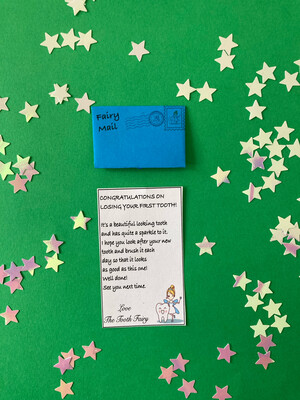 Fairy
Mail
CONGRATULATIONS ON
LOSING YOUR FIRST TOOTH!
It's a beautiful looking tooth
and has quite a sparkle to it.
I hope you look after your new
tooth and brush it each
day so that it looks
as good as this one!
Well done!
See you next time.
Love
The Tooth Fairy